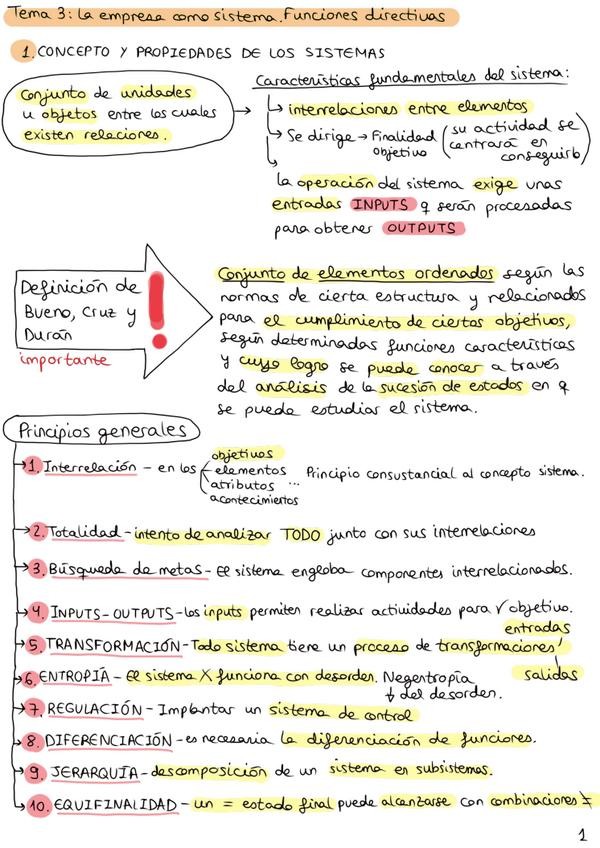 Tema 3: La empresa como sistema. Funciones directivas
1. CONCEPTO Y PROPIEDADES DE LOS SISTEMAS
Conjunto de unidades
u objetos entre los cuales
existen relaciones.
Características fundamentales del sistema:
interrelaciones entre elementos
Se dirige → Finalidad
objetivo
(su actividad se
centrará en
conseguirlo)
La operación del sistema exige unas
entradas INPUTS q serán procesadas
para obtener OUTPUTS
Definición de
Bueno, Cruz y
Durán
!
importante
Conjunto de elementos ordenados según las
normas de cierta estructura y relacionados
para el cumplimiento de ciertos objetivos,
según determinadas funciones características
y cuyo logro se puede conocer a través
del análisis de la sucesión de estados en q
se puede estudiar el sistema.
Principios generales
1. Interrelación - en los
objetivos
elementos
atributos ...
acontecimientos
Principio consustancial al concepto sistema.
2. Totalidad - intento de analizar TODO junto con sus interrelaciones
3. Búsqueda de metas - El sistema engloba componentes interrelacionados.
4. INPUTS-OUTPUTS - los inputs permiten realizar actividades para √ objetivo.
5. TRANSFORMACIÓN - Todo sistema tiene un proceso de transformaciones
entradas
salidas
6. ENTROPÍA - El sistema X funciona con desorden. Negentropía
↓ del desorden.
7. REGULACIÓN - Implantar un sistema de control
8. DIFERENCIACIÓN - es necesaria la diferenciación de funciones.
9. JERARQUÍA - descomposición de un sistema en subsistemas.
10. EQUIFINALIDAD - un = estado final puede alcanzarse con combinaciones ≠
1